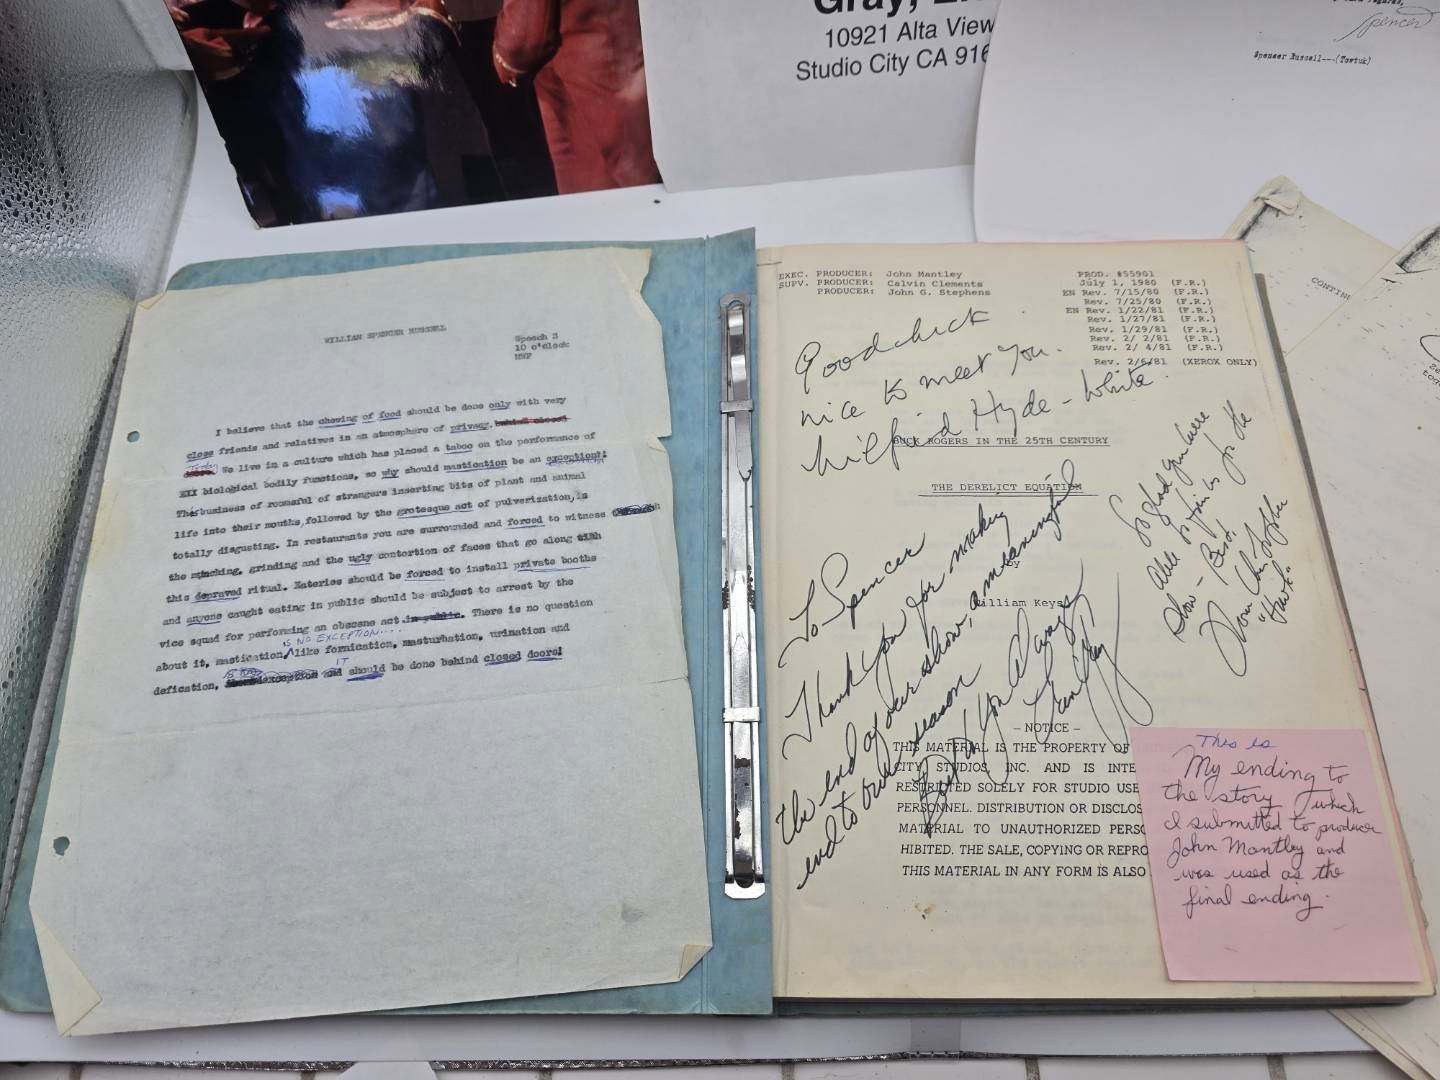 Gray,
10921 Alta View
Studio City CA 916
Spencer
Spencer Russell---(Towtuk)
CONTIN
WILLIAM SPENCER RUSSELL
Speech 2
10 o'clock
MWF
I believe that the chewing of food should be done only with very
close friends and relatives in an atmosphere of privacy, behind closed
doors. Today We live in a culture which has placed a taboo on the performance of
XXX biological bodily functions, so why should mastication be an exception?
The business of roomsful of strangers inserting bits of plant and animal
life into their mouths, followed by the grotesque act of pulverization, is
totally disgusting. In restaurants you are surrounded and forced to witness
the munching, grinding and the ugly contortion of faces that go along with
this depraved ritual. Eateries should be forced to install private booths
and anyone caught eating in public should be subject to arrest by the
vice squad for performing an obscene act in public. There is no question
IS NO EXCEPTION...
about it, mastication, like fornication, masturbation, urination and
IT
defication, exception and should be done behind closed doors!
EXEC. PRODUCER: John Mantley
SUPV. PRODUCER: Calvin Clements
PRODUCER: John G. Stephens
PROD. #55901
July 1, 1980 (F.R.)
EN Rev. 7/15/80 (F.R.)
Rev. 7/25/80 (F.R.)
EN Rev. 1/22/81 (F.R.)
Rev. 1/27/81 (F.R.)
Rev. 1/29/81 (F.R.)
Rev. 2/ 2/81 (F.R.)
Rev. 2/ 4/81 (F.R.)
Rev. 2/6/81 (XEROX ONLY)
Good luck
nice to meet you.
Wilfrid Hyde-White.
BUCK ROGERS IN THE 25TH CENTURY
THE DERELICT EQUATION
by
William Keys
To Spencer
Thank you for making
the end of our show, a meaningful
end to our season
Best to you Always
So glad you were
able to join us for the
show - Best,
Thom Christopher
"Hawk"
– NOTICE –
THIS MATERIAL IS THE PROPERTY OF
CITY STUDIOS, INC. AND IS INTE
RESTRICTED SOLELY FOR STUDIO USE
PERSONNEL. DISTRIBUTION OR DISCLOS
MATERIAL TO UNAUTHORIZED PERSO
HIBITED. THE SALE, COPYING OR REPRO
THIS MATERIAL IN ANY FORM IS ALSO
This is
My ending to
the story which
I submitted to producer
John Mantley and
was used as the
final ending.